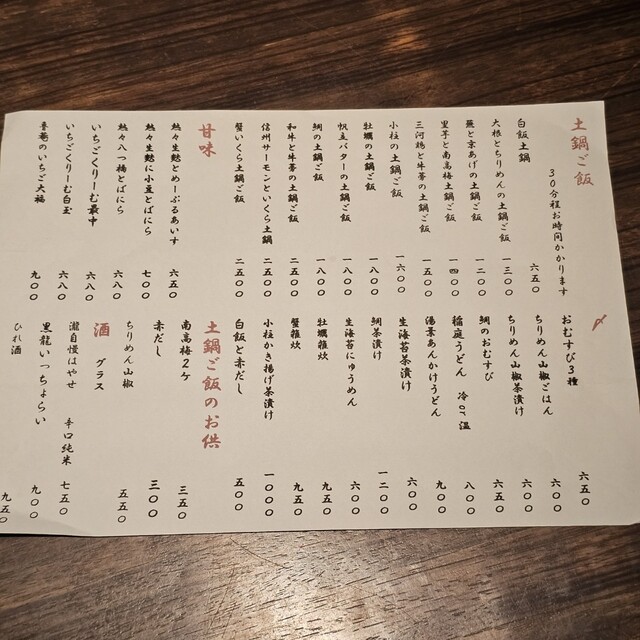 土鍋ご飯
30分程お時間かかります
白飯土鍋 六五〇
大根とちりめんの土鍋ご飯 一三〇〇
蕪と京あげの土鍋ご飯 一二〇〇
里芋と南高梅土鍋ご飯 一四〇〇
三河鶏と牛蒡の土鍋ご飯 一五〇〇
小柱の土鍋ご飯 一六〇〇
牡蠣の土鍋ご飯 一八〇〇
帆立バターの土鍋ご飯 一八〇〇
鯛の土鍋ご飯 一八〇〇
和牛と牛蒡の土鍋ご飯 二五〇〇
信州サーモンといくら土鍋 二五〇〇
蟹いくら土鍋ご飯 二五〇〇
甘味
麩々生麩とめーぷるあいす 六五〇
麩々生麩に小豆とばにら 七〇〇
麩々八つ橋とばにら 六八〇
いちごくりーむ最中 六八〇
いちごくりーむ白玉 六八〇
のいちご大福 九〇〇
〆
おむすび3種 六五〇
ちりめん山椒ごはん 六〇〇
ちりめん山椒茶漬け 六〇〇
鯛のおむすび 六五〇
稲庭うどん 冷or温 八〇〇
湯葉あんかけうどん 九〇〇
生海苔茶漬け 六〇〇
鯛茶漬け 一二〇〇
生海苔にゅうめん 六〇〇
牡蠣雑炊 九五〇
蟹雑炊 九五〇
小柱かき揚げ茶漬け 一〇〇〇
白飯と赤だし 五〇〇
土鍋ご飯のお供
南高梅2ケ 三五〇
赤だし 三〇〇
ちりめん山椒 五五〇
酒 グラス
瀧自慢はやせ 辛口純米 七五〇
黒龍いっちょらい 九〇〇
ひれ酒 九五〇